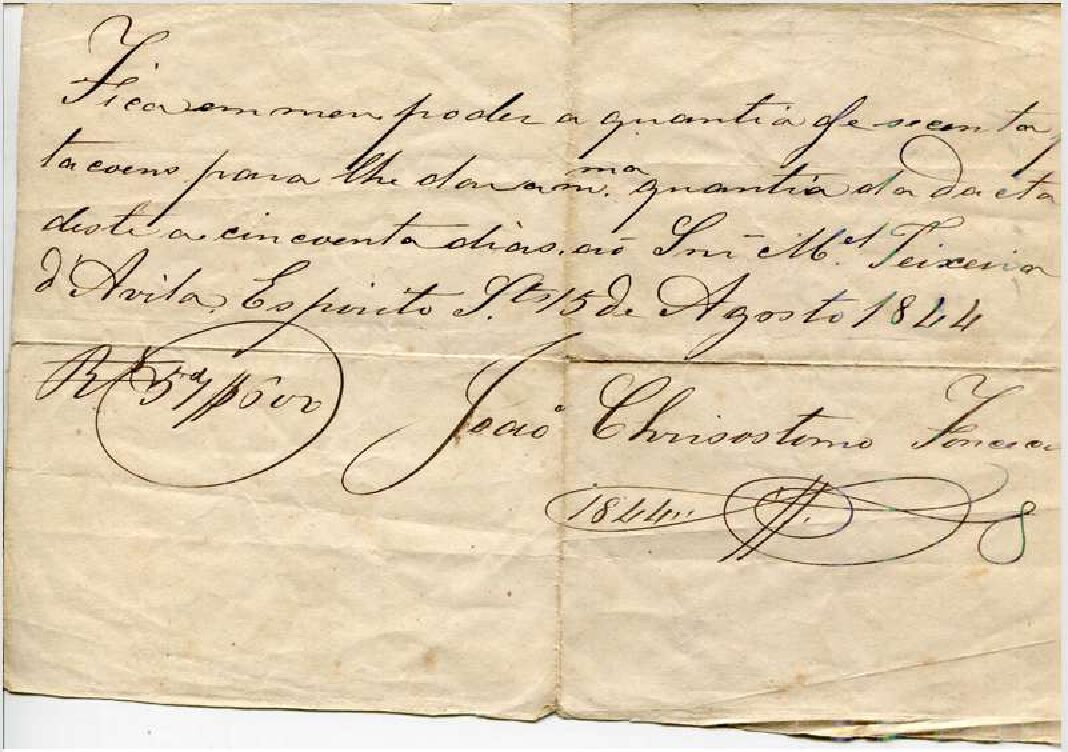 Fica em meu poder a quantia de secenta p
tacoens para lhe dar a m.ma quantia da dacta
deste a cincoenta dias, ao Snr. M.el Teixeira
d'Avila, Espirito S.to 15 de Agosto 1844
R.s 57$600 João Chrisostomo Fonceca
1844